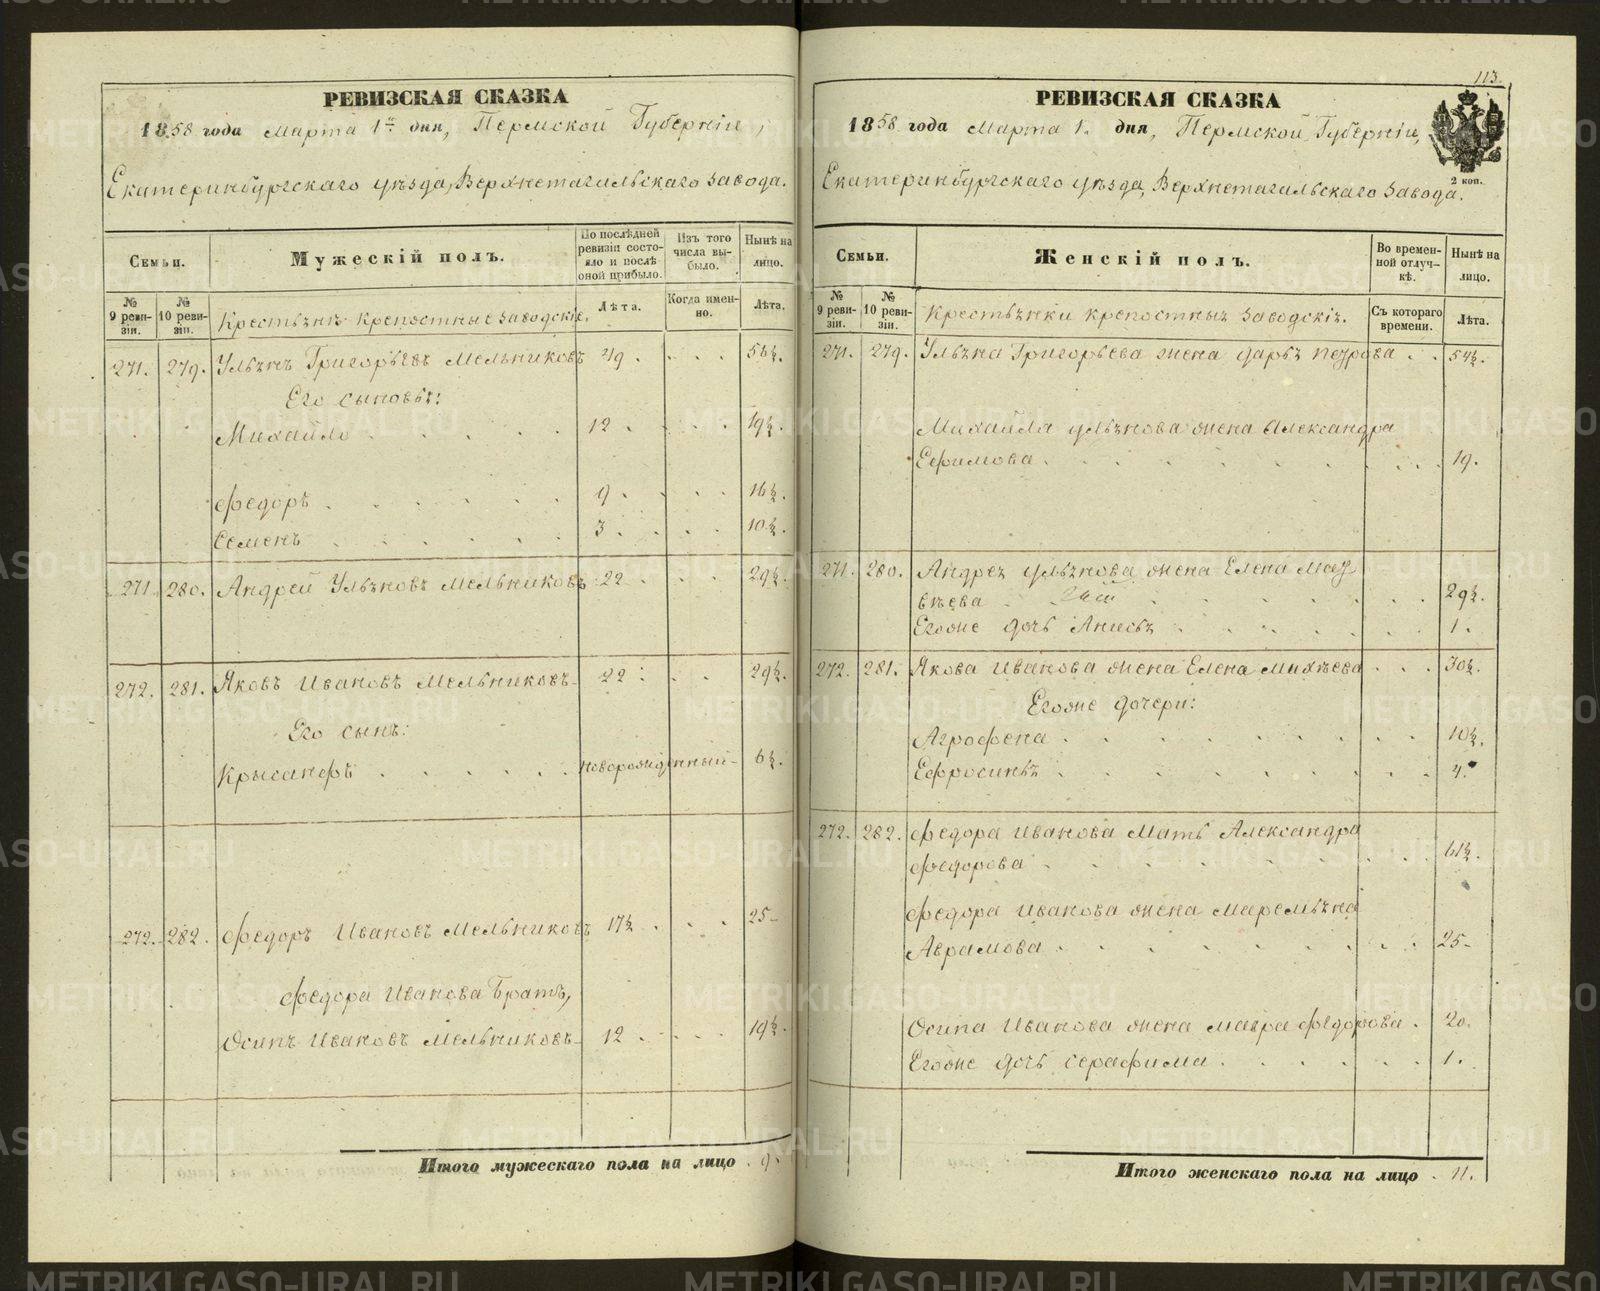 РЕВИЗСКАЯ СКАЗКА
1858 года марта 1го дня, Пермской Губерніи,
Екатеринбургскаго уѣзда, Верхнетагильскаго завода.
Семьи.
Мужескій полъ.
По послѣдней ревизіи состояло и послѣ оной прибыло.
Изъ того числа выбыло.
Нынѣ на лицо.
№ 9 ревизіи.
№ 10 ревизіи.
Крестьянѣ крепостные заводскіе.
Лѣта.
Когда именно.
Лѣта.
271. 279. Ульянъ Григорьевъ Мельниковъ 49 . . . 56½.
Его сыновья:
Михайло . . . . . 12 . . . 19½.
Федоръ . . . . . 9 . . . 16½.
Семенъ . . . . . 3 . . . 10½.
271. 280. Андрей Ульяновъ Мельниковъ 22 . . . 29½.
272. 281. Яковъ Ивановъ Мельниковъ 22 . . . 29½.
Его сынъ:
Крысанфъ . . . . . новорожденный 6½.
272. 282. Федоръ Ивановъ Мельниковъ 17½ . . . 25
Федора Иванова Братъ,
Осипъ Ивановъ Мельниковъ 12 . . . 19½.
Итого мужескаго пола на лицо . 9.
113.
РЕВИЗСКАЯ СКАЗКА
1858 года марта 1. дня, Пермской Губерніи,
Екатеринбургскаго уѣзда, Верхнетагильскаго завода.
2 коп.
Семьи.
Женскій полъ.
Во временной отлучкѣ.
Нынѣ на лицо.
№ 9 ревизіи.
№ 10 ревизіи.
Крестьянки крепостныя заводскія.
Съ котораго времени.
Лѣта.
271. 279. Ульяна Григорьева жена Дарья Петрова . . 54½.
Михайла Ульянова жена Александра
Ефимова . . . . . 19.
271. 280. Андрея Ульянова жена Елена Мат
вѣева . . . . . 29½.
Егоже дочь Анисья . . . . . 1.
272. 281. Якова Иванова жена Елена Михѣева . . . 30½.
Егоже дочери:
Агрофена . . . . . 10½.
Ефросинья . . . . . 4.
272. 282. Федора Иванова Мать Александра
Федорова . . . . . 61½.
Федора Иванова жена Маремьяна
Аврамова . . . . . 25
Осипа Иванова жена Мавра Федорова . 20.
Егоже дочь Серафима . . . . . 1.
Итого женскаго пола на лицо . 11.
METRIKI.GASO-URAL.RU